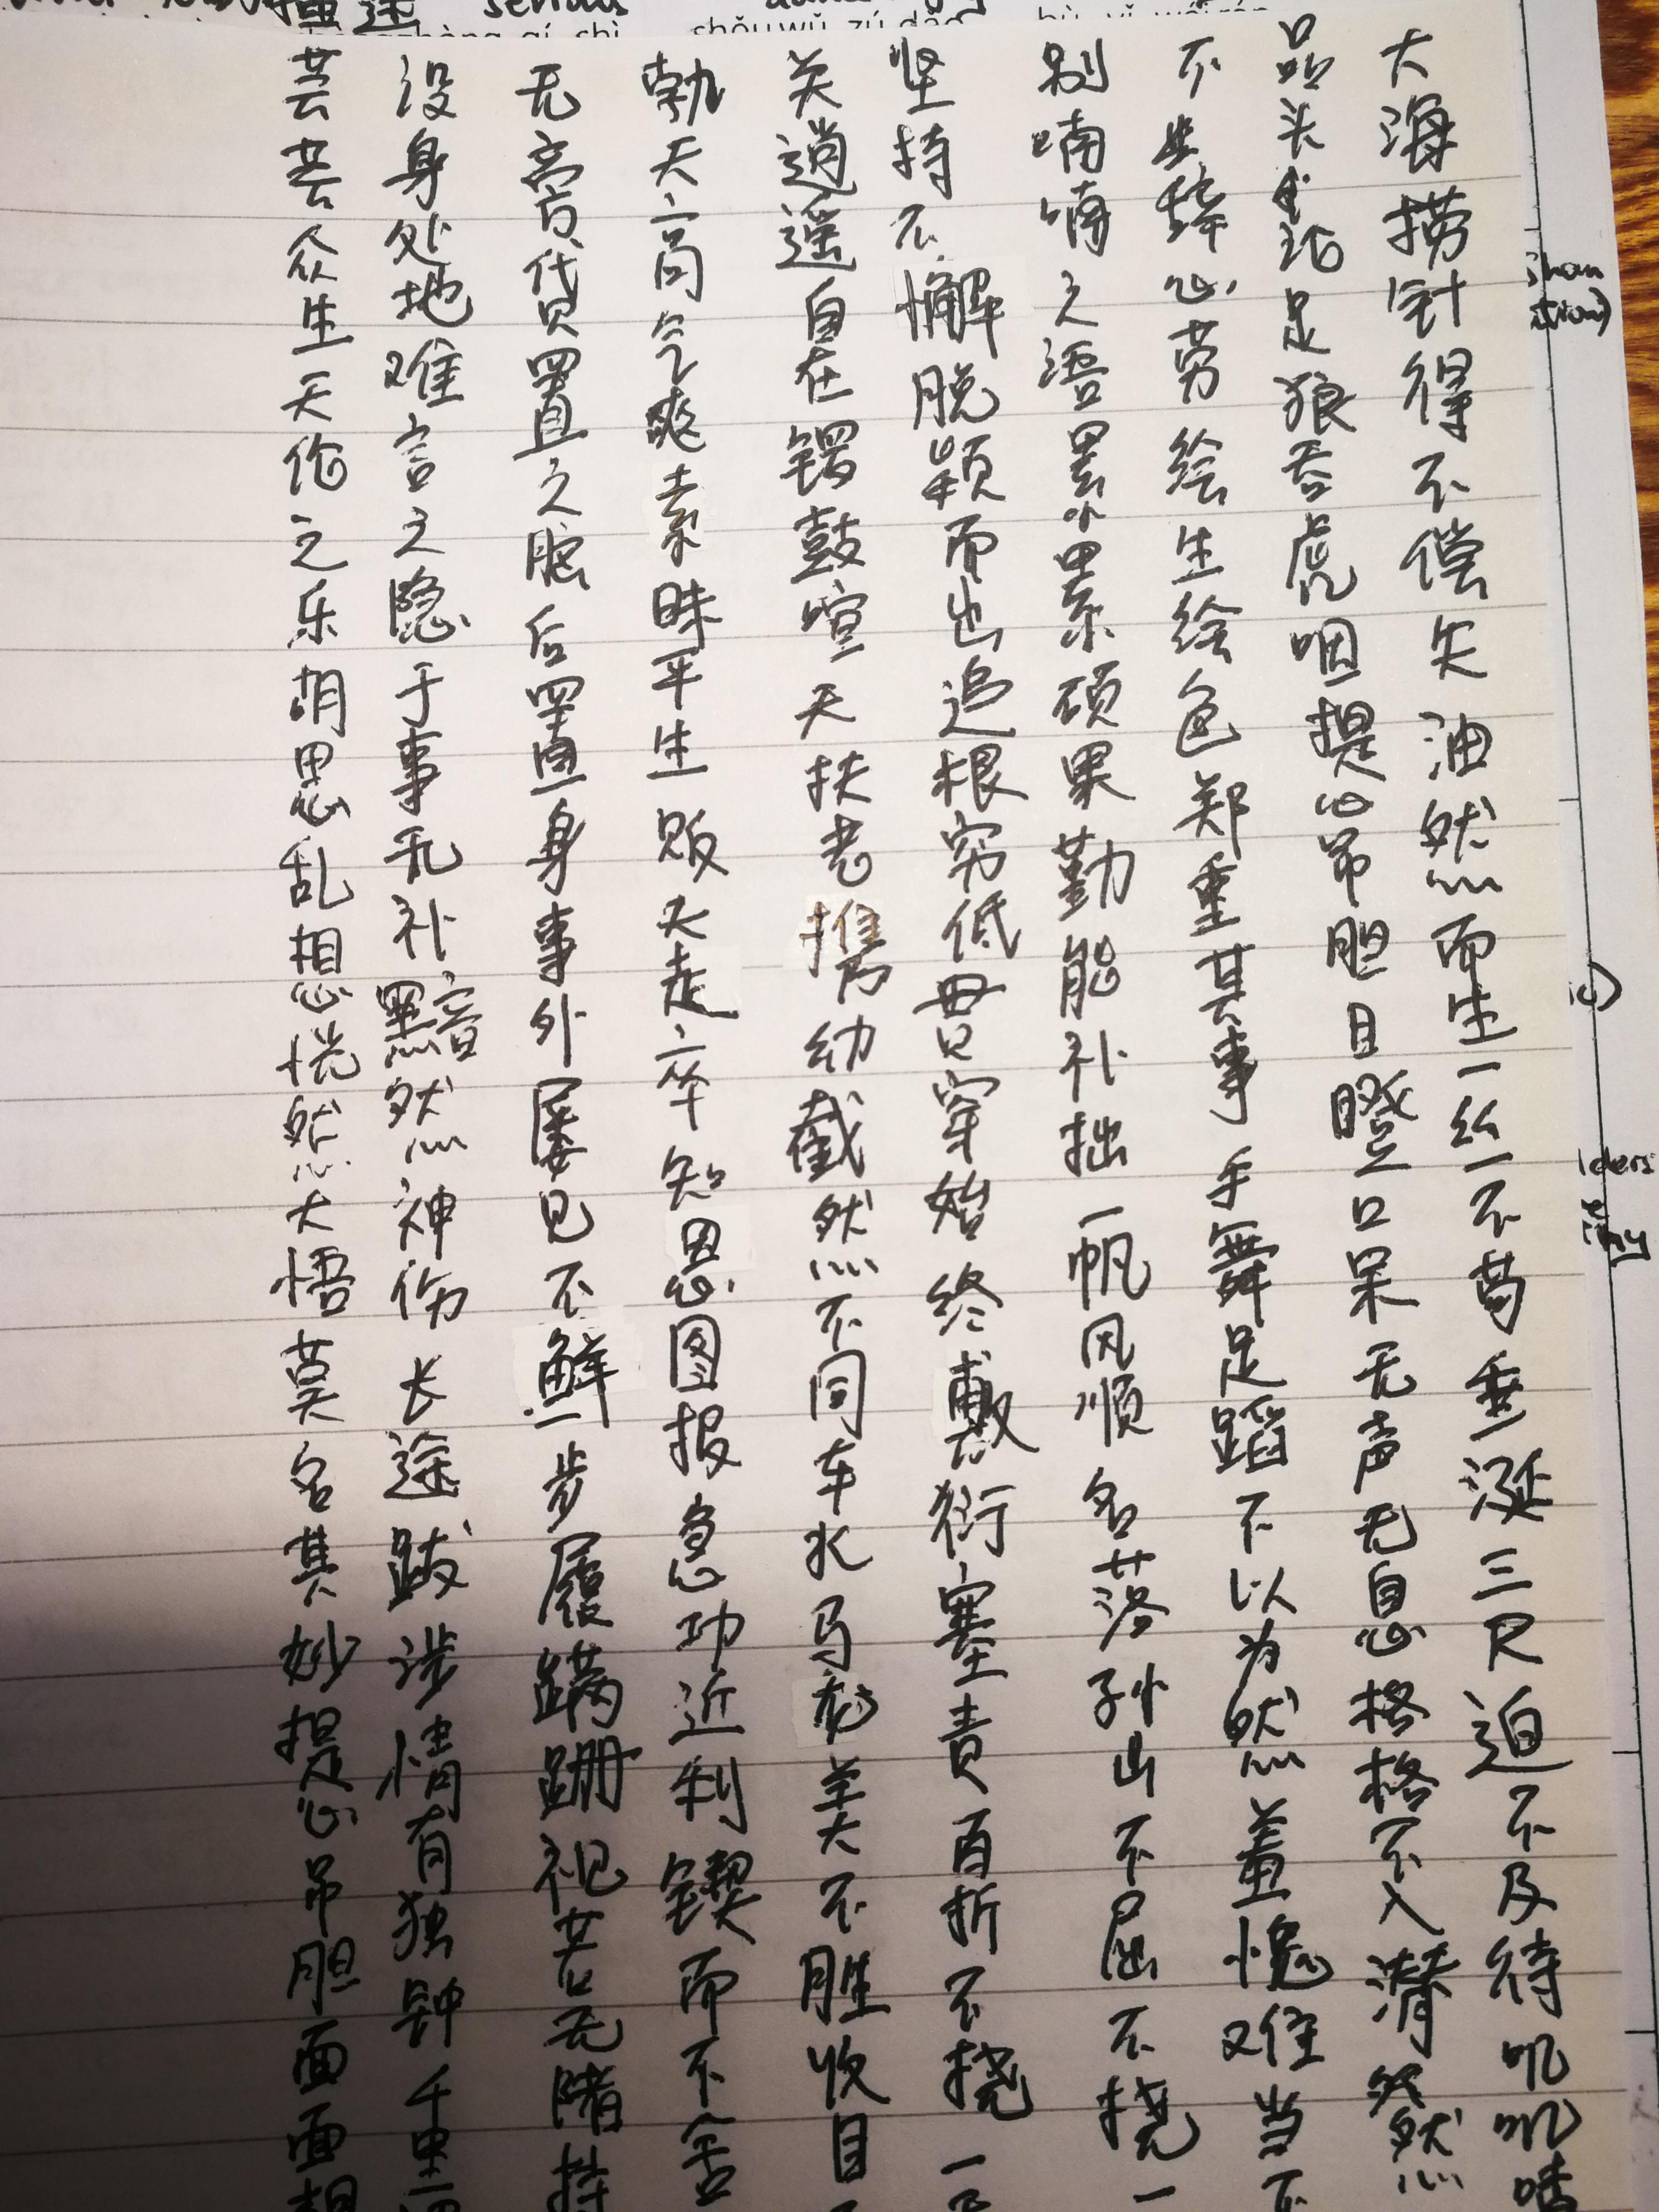 serious
shǒuwǔ zú dǎo
大海捞针得不偿失油然而生一丝不苟垂涎三尺迫不及待叽叽喳
品头论足狼吞虎咽提心吊胆目瞪口呆无声无息格格不入潸然
不辞心劳绘生绘色郑重其事手舞足蹈不以为然羞愧难当不
别喃喃之语累累硕果勤能补拙一帆风顺名落孙山不屈不挠一
坚持不懈脱颖而出追根穷低贯穿始终敷衍塞责百折不挠一
关逍遥自在锣鼓喧天扶老携幼截然不同车水马龙美不胜收目
勃天高气爽素昧平生贩夫走卒知恩图报急功近利锲而不舍
无旁贷置之脑后置身事外屡见不鲜步履蹒跚视若无睹持
设身处地难言之隐于事无补黯然神伤长途跋涉情有独钟千里
芸芸众生天伦之乐胡思乱想恍然大悟莫名其妙提心吊胆面面相